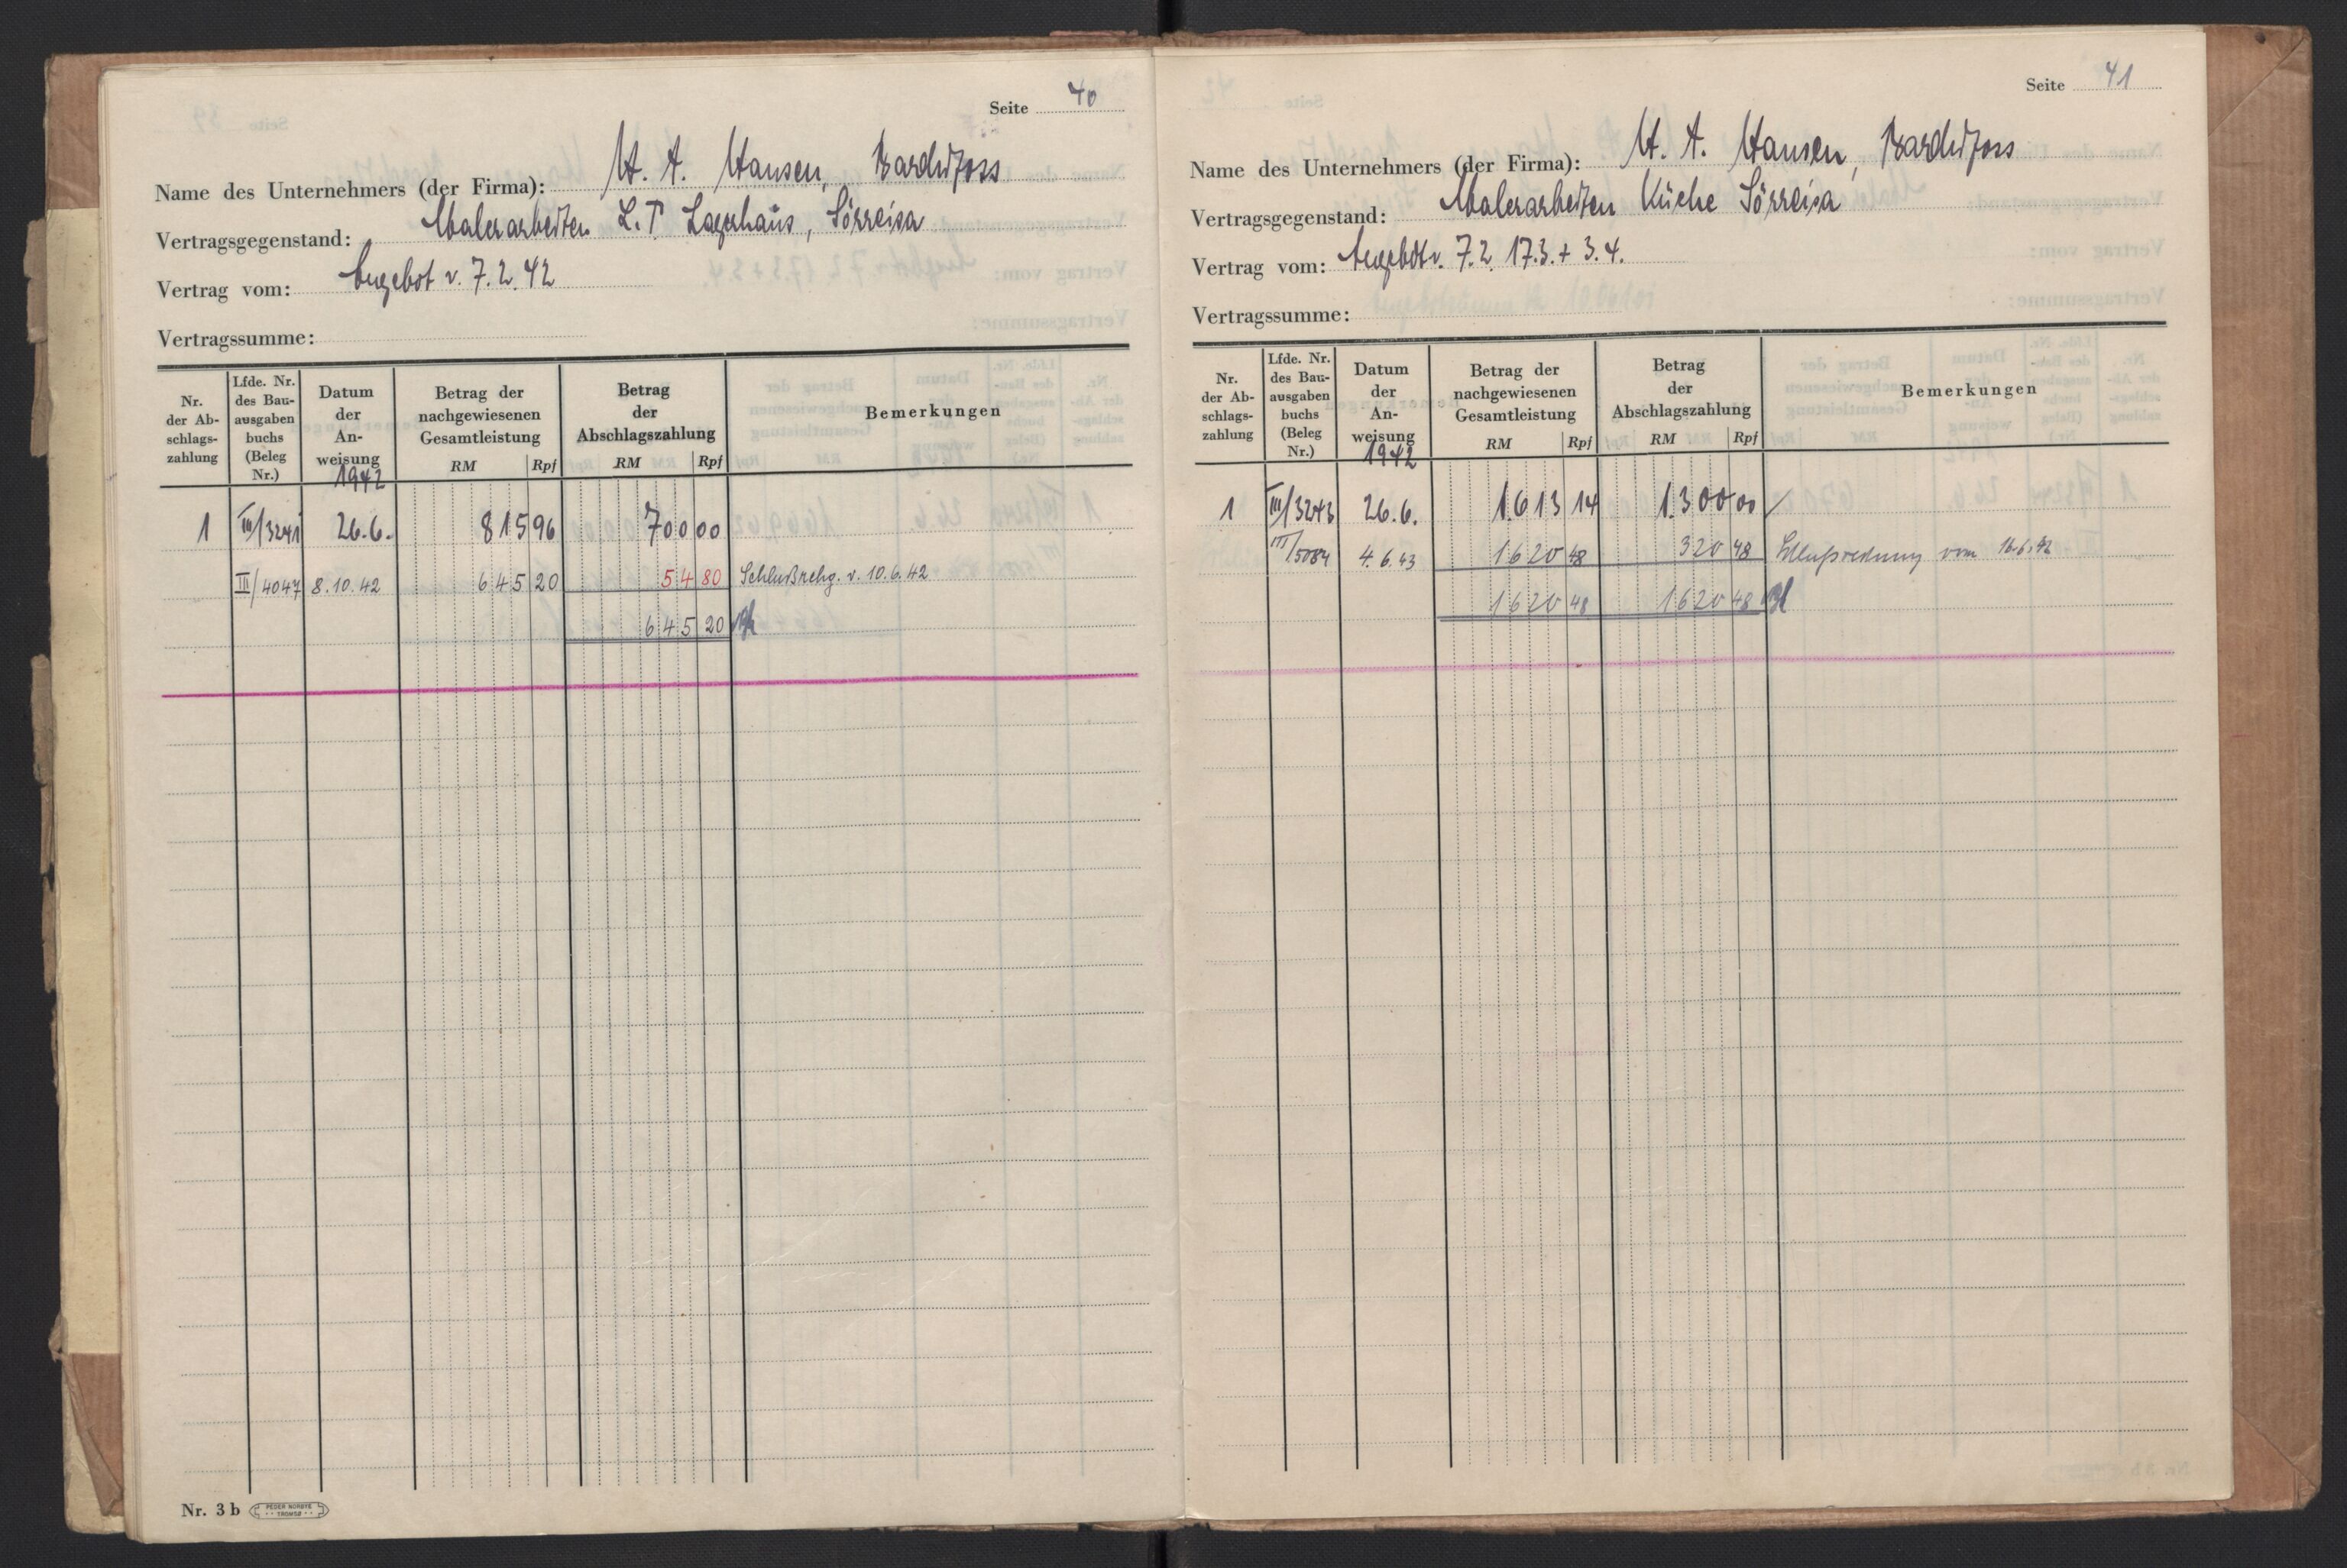 Seite 40
Name des Unternehmers (der Firma): H. A. Hansen, Bardufoss
Vertragsgegenstand: Malerarbeiten L.T. Lagerhaus, Sörreisa
Vertrag vom: Angebot v. 7.2.42
Vertragssumme:
Nr. der Ab-schlags-zahlung | Lfde. Nr. des Bau-ausgaben buchs (Beleg Nr.) | Datum der An-weisung | Betrag der nachgewiesenen Gesamtleistung RM Rpf | Betrag der Abschlagszahlung RM Rpf | Bemerkungen
1942
1 III/3241 26.6. 815 96 700 00
III/4047 8.10.42 645 20 54 80 Schlußrchg. v. 10.6.42
645 20
Nr. 3 b PEDER NORBYE TROMSØ
Seite 41
Name des Unternehmers (der Firma): H. A. Hansen, Bardufoss
Vertragsgegenstand: Malerarbeiten Küche Sörreisa
Vertrag vom: Angebot v. 7.2. 17.3. + 3.4.
Vertragssumme:
Nr. der Ab-schlags-zahlung | Lfde. Nr. des Bau-ausgaben buchs (Beleg Nr.) | Datum der An-weisung | Betrag der nachgewiesenen Gesamtleistung RM Rpf | Betrag der Abschlagszahlung RM Rpf | Bemerkungen
1942
1 III/3243 26.6. 1.613 14 1.300 00
III/5084 4.6.43 1620 48 320 48 Schlußrechnung vom 16.6.42
1620 48 1620 48